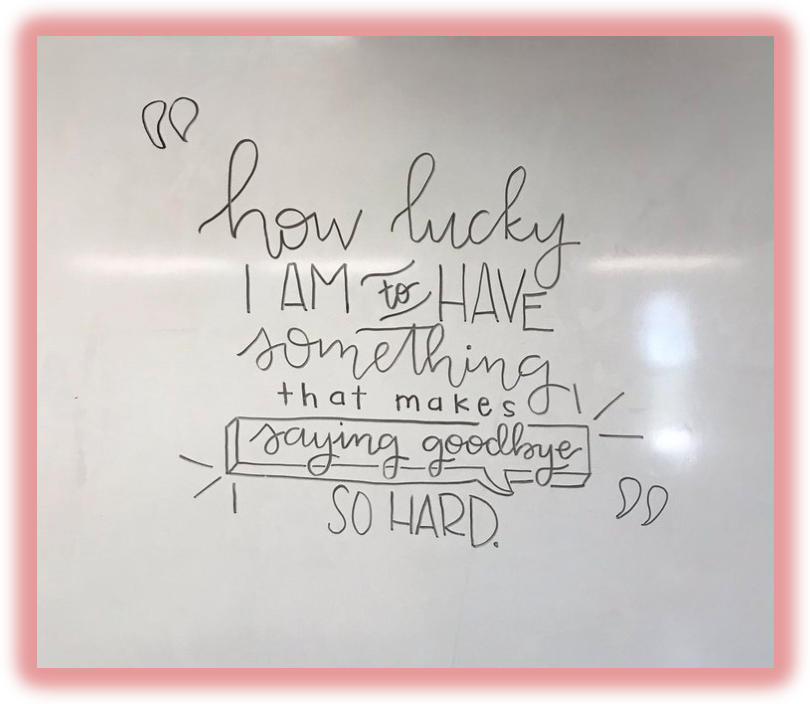 “how lucky
I AM to HAVE
something
that makes
saying goodbye
SO HARD.”